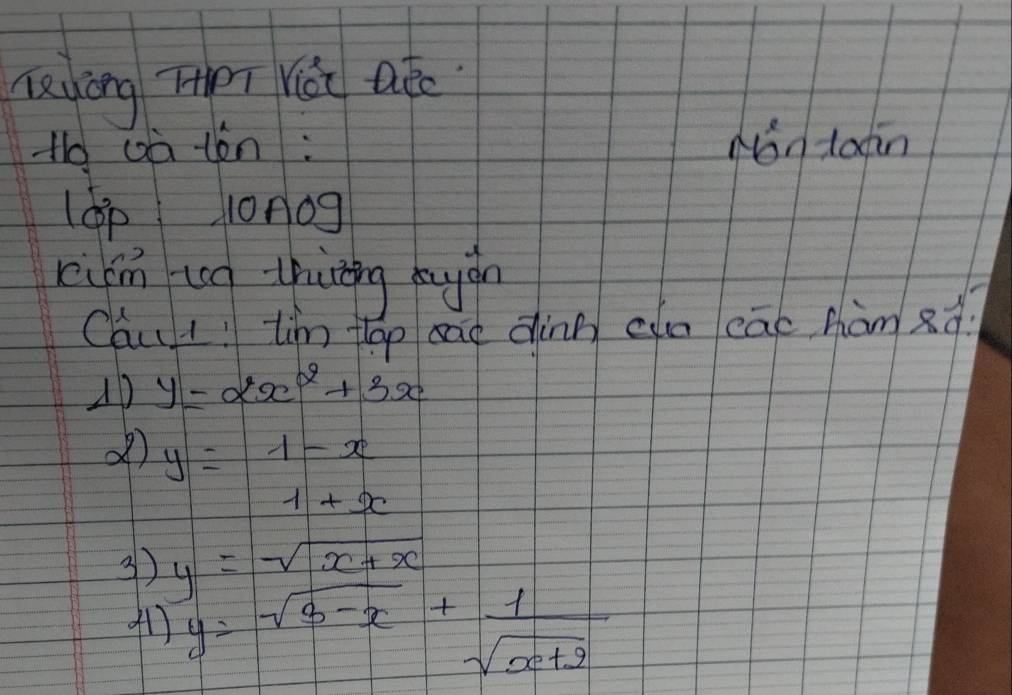 Trường THPT Việt Đức
Họ và tên : Môn toán
lớp : 10A09
kiểm tra thường xuyên
Câu 1 : tìm tập xác định của các hàm số :
1) y = 2x² + 3x
2) y = 1 - x
1 + x
3) y = √(x + x)
4) y = √(3 - x) + 1
√(x+2)